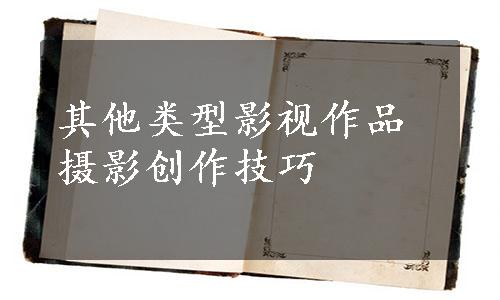 其他类型影视作品
摄影创作技巧